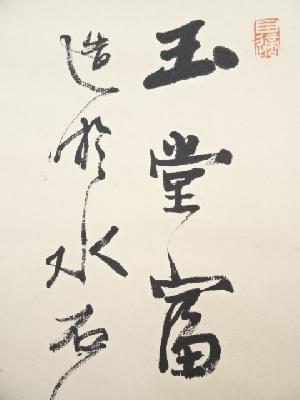 玉堂富
造於水石